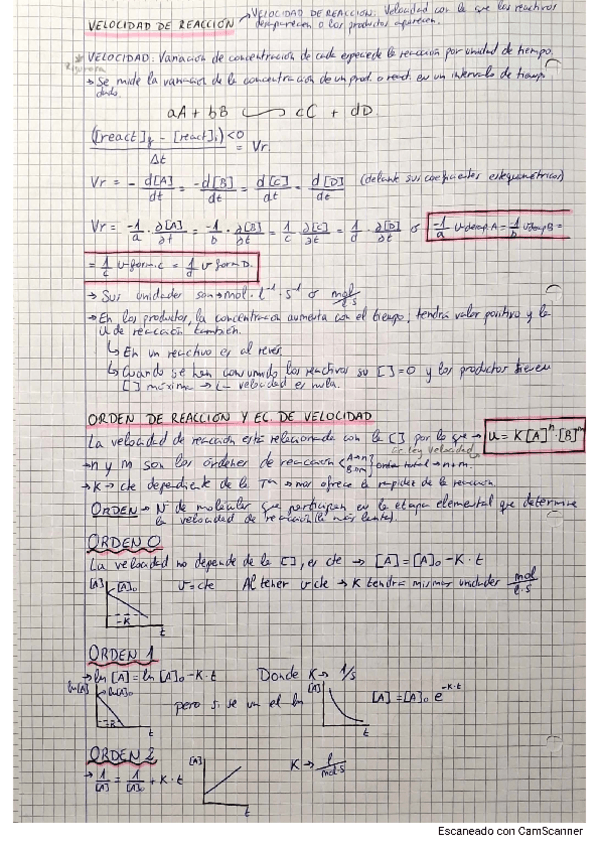 VELOCIDAD DE REACCIÓN → VELOCIDAD DE REACCIÓN: Velocidad con la que los reactivos
desaparecen o los productos aparecen.
VELOCIDAD: Variación de concentración de cada especie de la reacción por unidad de tiempo.
→ Se mide la variación de la concentración de un prod. o react. en un intervalo de tiempo
dado.
aA + bB cC + dD
([react]f - [react]i)<0 / Δt = Vr.
Vr = - d[A]/dt = -d[B]/dt = d[C]/dt = d[D]/dt (delante sus coeficientes estequiométricos)
Vr = -1/a · ∂[A]/∂t = -1/b · ∂[B]/∂t = 1/c · ∂[C]/∂t = 1/d · ∂[D]/∂t o -1/a v desap. A = -1/b v desap B =
= 1/c v form. C = 1/d v form D.
→ Sus unidades son → mol · l⁻¹ · s⁻¹ o mol/l·s
→ En los productos, la concentración aumenta con el tiempo, tendrá valor positivo y la
v de reacción también.
↳ En un reactivo es al revés.
↳ Cuando se han consumido los reactivos su [] = 0 y los productos tienen
[] máxima → la velocidad es nula.
ORDEN DE REACCIÓN Y EC. DE VELOCIDAD
La velocidad de reacción está relacionada con la [] por lo que → v = K[A]ⁿ·[B]ᵐ
ley velocidad
→ n y m son los órdenes de reacción A→n B→m orden total → n+m.
→ K → cte dependiente de la Tª → nos ofrece la rapidez de la reacción.
ORDEN → Nº de moléculas que participan en la etapa elemental que determina
la velocidad de reacción (la más lenta).
ORDEN 0
La velocidad no depende de la [], es cte → [A] = [A]₀ - K · t
[A] [A]₀ v = cte Al tener v cte → K tendrá mismas unidades mol/l·s
-K
t
ORDEN 1
→ ln [A] = ln [A]₀ - K · t Donde K → 1/s
ln[A] ln[A]₀ pero si se va el ln [A] [A] = [A]₀ e^-K·t
-K
t t
ORDEN 2
→ 1/[A] = 1/[A]₀ + K · t [A] K → l/mol·s
t
Escaneado con CamScanner